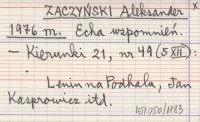 ZACZYŃSKI Aleksander x
1976 m. Echa wspomnień.
— Kierunki 21, nr 49 (5 XII):
Lenin na Podhalu, Jan
Kasprowicz itd.